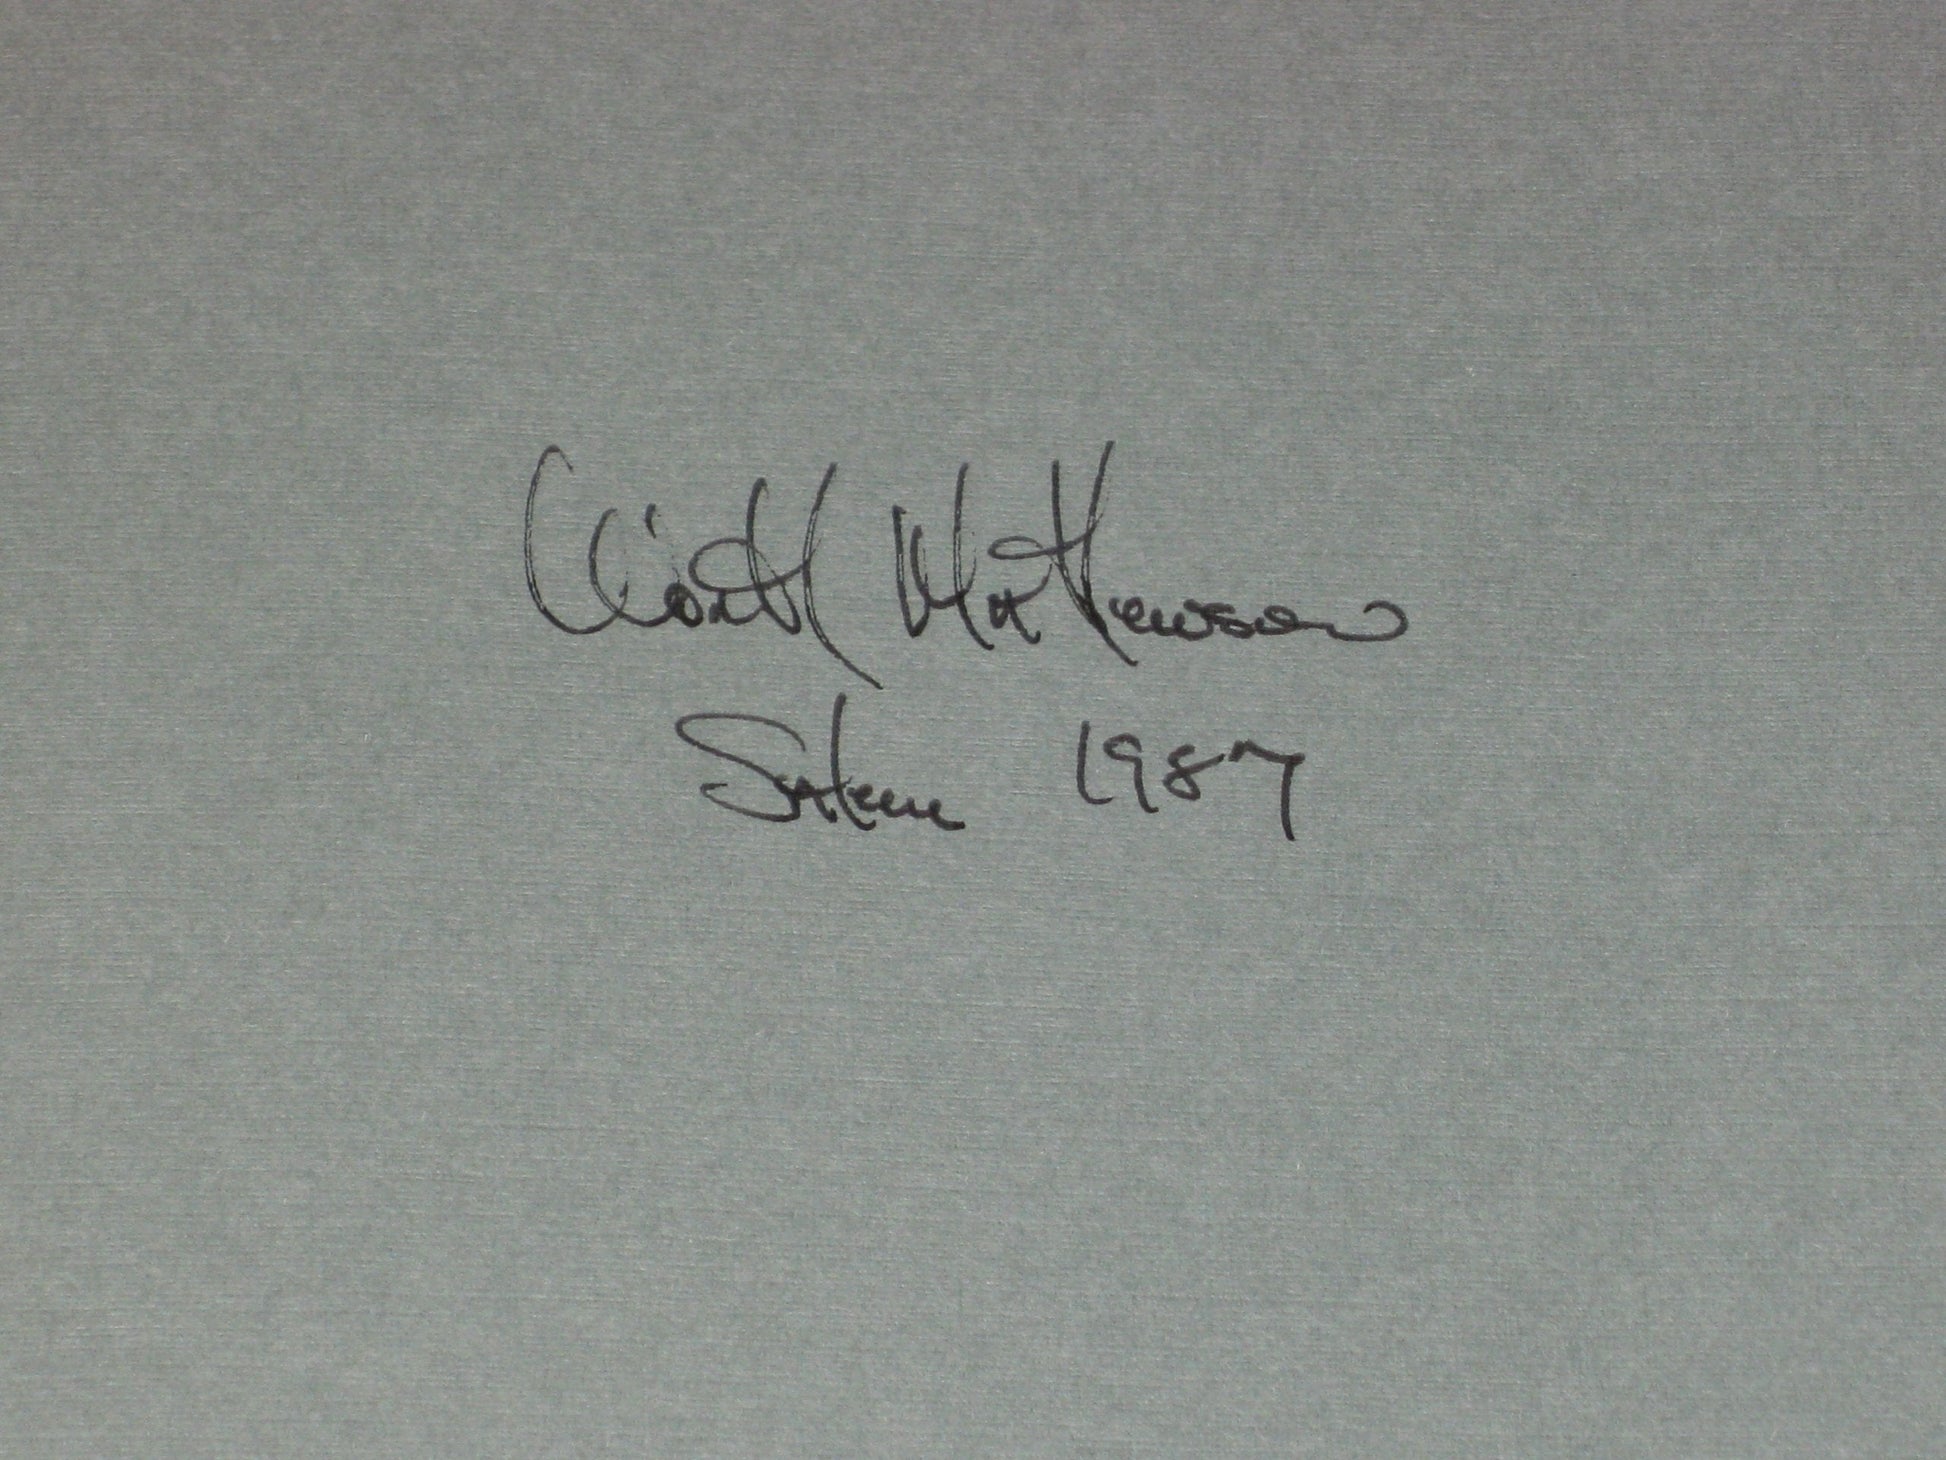 Worth Mathewson
Salem 1987